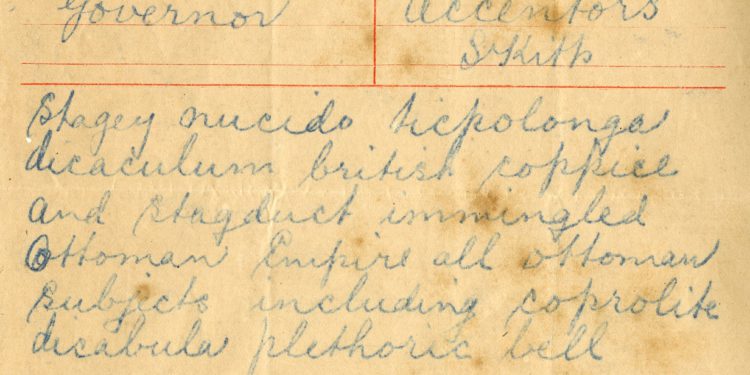 Governor Accentors
St Kitts
Stagey nucido ticpolonga
dicaculum british coppice
and stagduct immingled
Ottoman Empire all ottoman
subjects including coprolite
dicabula plethoric bell